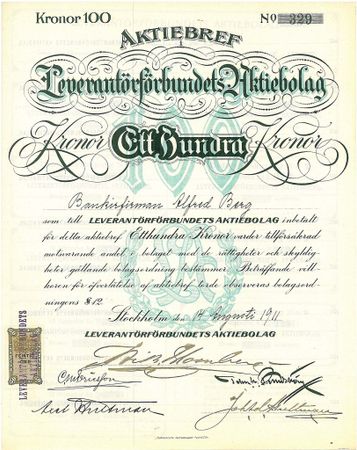 Kronor 100
No 329
AKTIEBREF
Leverantörförbundets Aktiebolag
Kronor Ett Hundra Kronor
Bankirfirman Alfred Berg
som till LEVERANTÖRFÖRBUNDETS AKTIEBOLAG inbetalt
för detta aktiebref Etthundra Kronor varder tillförsäkrad
motsvarande andel i bolaget med de rättigheter och skyldig-
heter gällande bolagsordning bestämmer. Beträffande vill-
koren för öfverlåtelse af aktiebref torde observeras bolagsord-
ningens § 12.
Stockholm den 14 Augusti 1911
LEVERANTÖRFÖRBUNDETS AKTIEBOLAG
LEVERANTÖRFÖRBUNDETS
AKTIEBOLAG
Axel Hultman